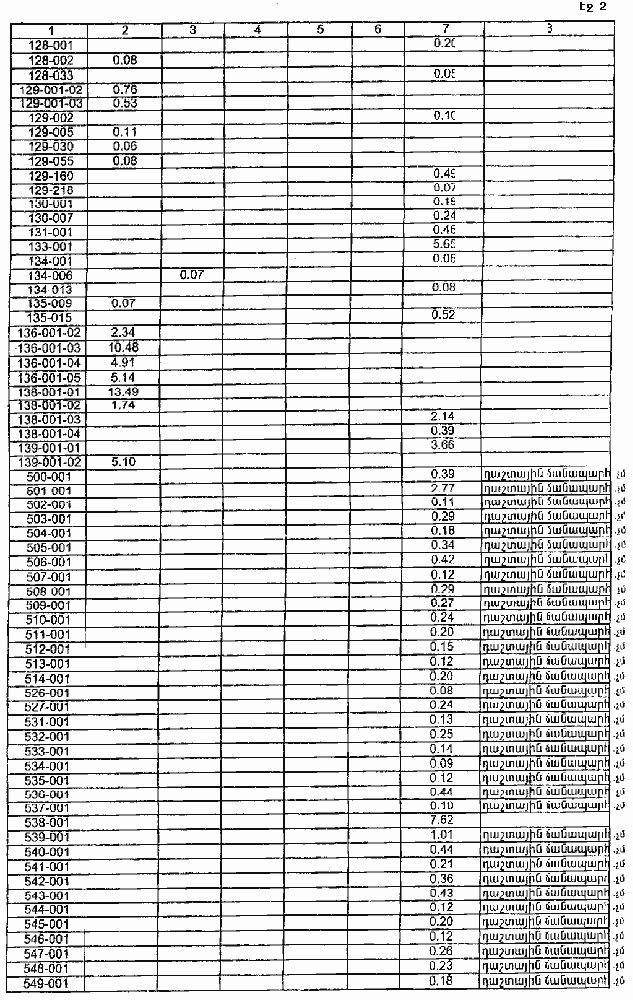 Էջ 2
1 2 3 4 5 6 7 8
128-001 0.20
128-002 0.08
128-033 0.05
129-001-02 0.76
129-001-03 0.53
129-002 0.10
129-005 0.11
129-030 0.06
129-055 0.08
129-160 0.45
129-218 0.07
130-001 0.19
130-007 0.24
131-001 0.46
133-001 5.65
134-001 0.06
134-006 0.07
134-013 0.08
135-009 0.07
135-015 0.52
136-001-02 2.34
136-001-03 10.48
136-001-04 4.91
136-001-05 5.14
138-001-01 13.49
138-001-02 1.74
138-001-03 2.14
138-001-04 0.39
139-001-01 3.66
139-001-02 5.10
500-001 0.39 դաշտային ճանապարհ
501-001 2.77 դաշտային ճանապարհ
502-001 0.11 դաշտային ճանապարհ
503-001 0.29 դաշտային ճանապարհ
504-001 0.18 դաշտային ճանապարհ
505-001 0.34 դաշտային ճանապարհ
506-001 0.42 դաշտային ճանապարհ
507-001 0.12 դաշտային ճանապարհ
508-001 0.29 դաշտային ճանապարհ
509-001 0.27 դաշտային ճանապարհ
510-001 0.24 դաշտային ճանապարհ
511-001 0.20 դաշտային ճանապարհ
512-001 0.15 դաշտային ճանապարհ
513-001 0.12 դաշտային ճանապարհ
514-001 0.20 դաշտային ճանապարհ
526-001 0.08 դաշտային ճանապարհ
527-001 0.24 դաշտային ճանապարհ
531-001 0.13 դաշտային ճանապարհ
532-001 0.25 դաշտային ճանապարհ
533-001 0.14 դաշտային ճանապարհ
534-001 0.09 դաշտային ճանապարհ
535-001 0.12 դաշտային ճանապարհ
536-001 0.44 դաշտային ճանապարհ
537-001 0.10 դաշտային ճանապարհ
538-001 7.62
539-001 1.01 դաշտային ճանապարհ
540-001 0.44 դաշտային ճանապարհ
541-001 0.21 դաշտային ճանապարհ
542-001 0.36 դաշտային ճանապարհ
543-001 0.43 դաշտային ճանապարհ
544-001 0.12 դաշտային ճանապարհ
545-001 0.20 դաշտային ճանապարհ
546-001 0.12 դաշտային ճանապարհ
547-001 0.26 դաշտային ճանապարհ
548-001 0.23 դաշտային ճանապարհ
549-001 0.18 դաշտային ճանապարհ